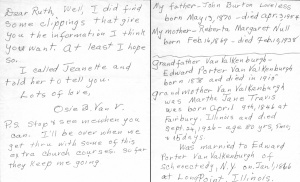 Dear Ruth, Well, I did find
some clippings that give
you the information I think
you want. At least I hope
so.
I called Jeanette and
told her to tell you.
Lots of love,
Osie B. Van V.
P.S. Stop & see me when you
can. I'll be over when we
get thru with some of this
extra church courses. So far
they keep me going
My father - John Burton Loveless
born May 13, 1870 - died apr. 3, 1958
My mother - Roberta Margaret Null
born Feb 16, 1869 - died Feb 10, 1928
Grandfather Van Valkenburgh -
Edward Porter Van Valkenburgh
born 1838 and died in 1915
Grandmother Van Valkenburgh
was Martha Jane Travis
was born April 9th, 1846 at
Fairbury, Illinois and died
Sept. 24, 1926 - age 80 yrs, 5 mo,
15 days.
Was married to Edward
Porter Van Valkenburgh of
Schenectady, N.Y. on Jan 1, 1866
at Long Point, Illinois.